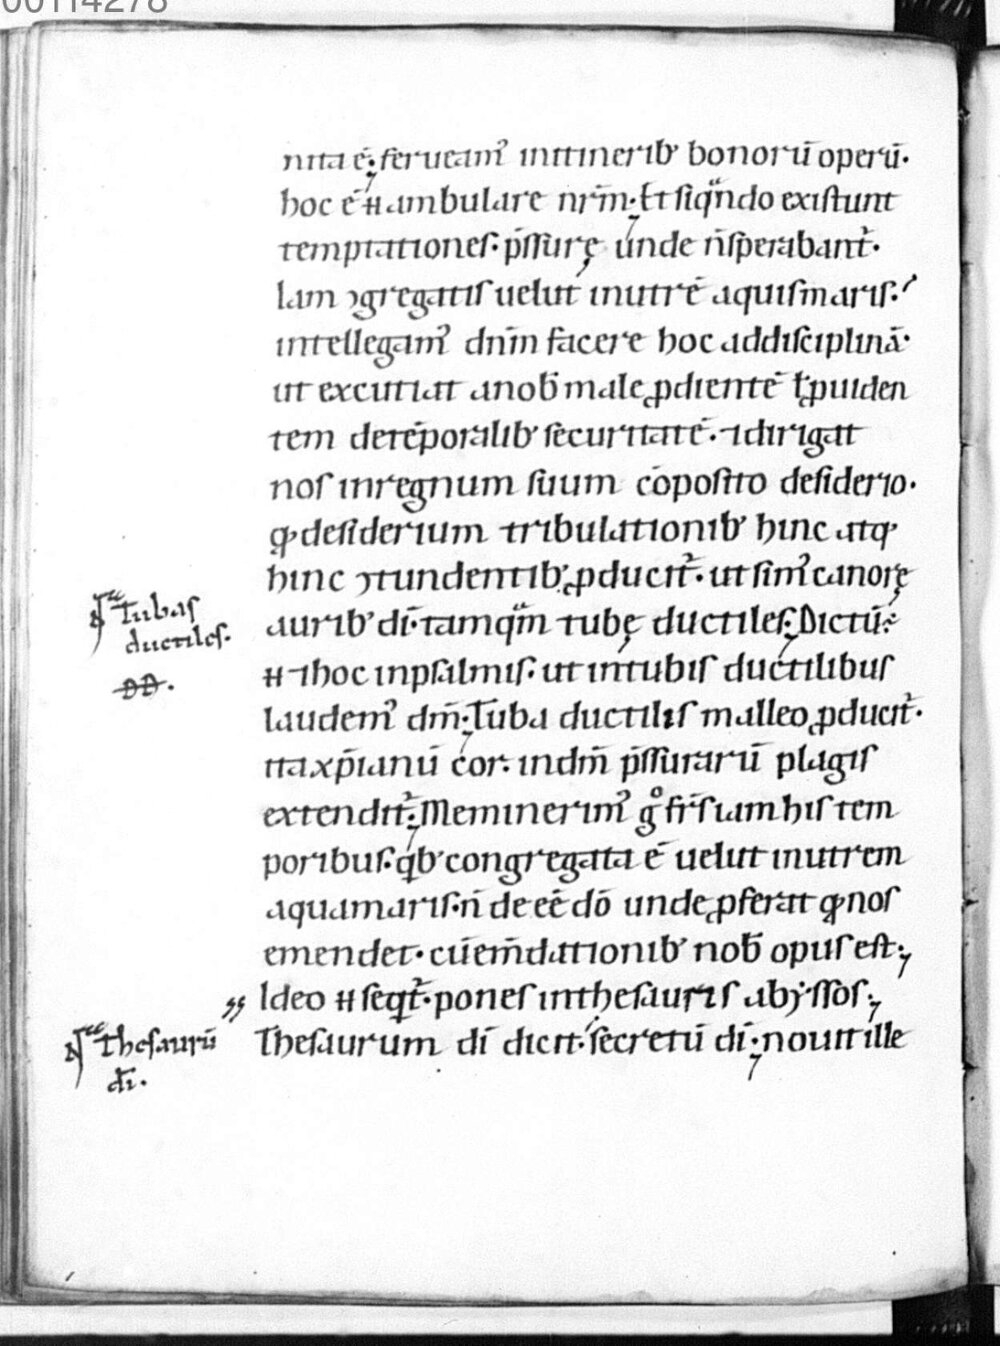 00114278
nita ē; ferueam᾿ initinerib᾿ bonorū operū·
hoc ē ħ ambulare nr̄m· Et siqͣndo existunt
temptationes· p̄ssurę unde n̄ sperabant᷑·
Iam ɔgregatis uelut inutrē aquismaris·
intellegam᾿ dn̄m facere hoc addisciplinā·
ut excutiat anob̄ male ꝓdientē ł ꝓuiden
tem detēporalib᾿ securitatē· ⁊dirigat
nos inregnum suum cōposito desiderio·
qđ desiderium tribulationib᾿ hinc atq᾿
hinc ɔtundentib᾿ ꝓducit᷑· ut sim᾿ canorę
aurib᾿ dī· tamqͣm tubę ductiles; Dictū ē
ħ ⁊ hoc inpsalmis· ut intubis ductilibus
laudem᾿ dm̄; Tuba ductilis malleo ꝓducit᷑·
ita xp̄ianū cor· indm̄ p̄ssurarū plagis
extendit᷑; Meminerim᾿ gͦ fr̄s iam his tem
poribus· qͥb᾿ congregata ē uelut inutrem
aquamaris· n̄ deeē dō unde ꝓferat qđ nos
emendet· cū em̄dationib᾿ nob̄ opus est;
Ideo ħ seqͥt᷑· pones inthesauris abẏssos;
Thesaurum dī dicit· secretū dī; nouit ille
tubas
ductiles·
thesaurū
dī·